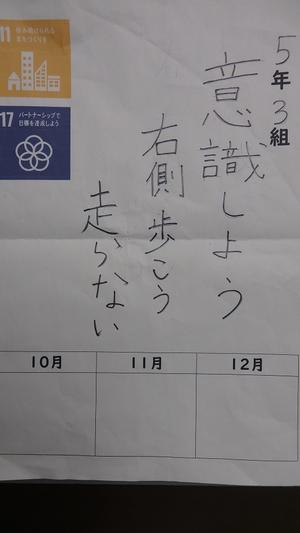 11 住み続けられる
まちづくりを
17 パートナーシップで
目標を達成しよう
5年3組
意識しよう
右側歩こう
走らない
10月
11月
12月